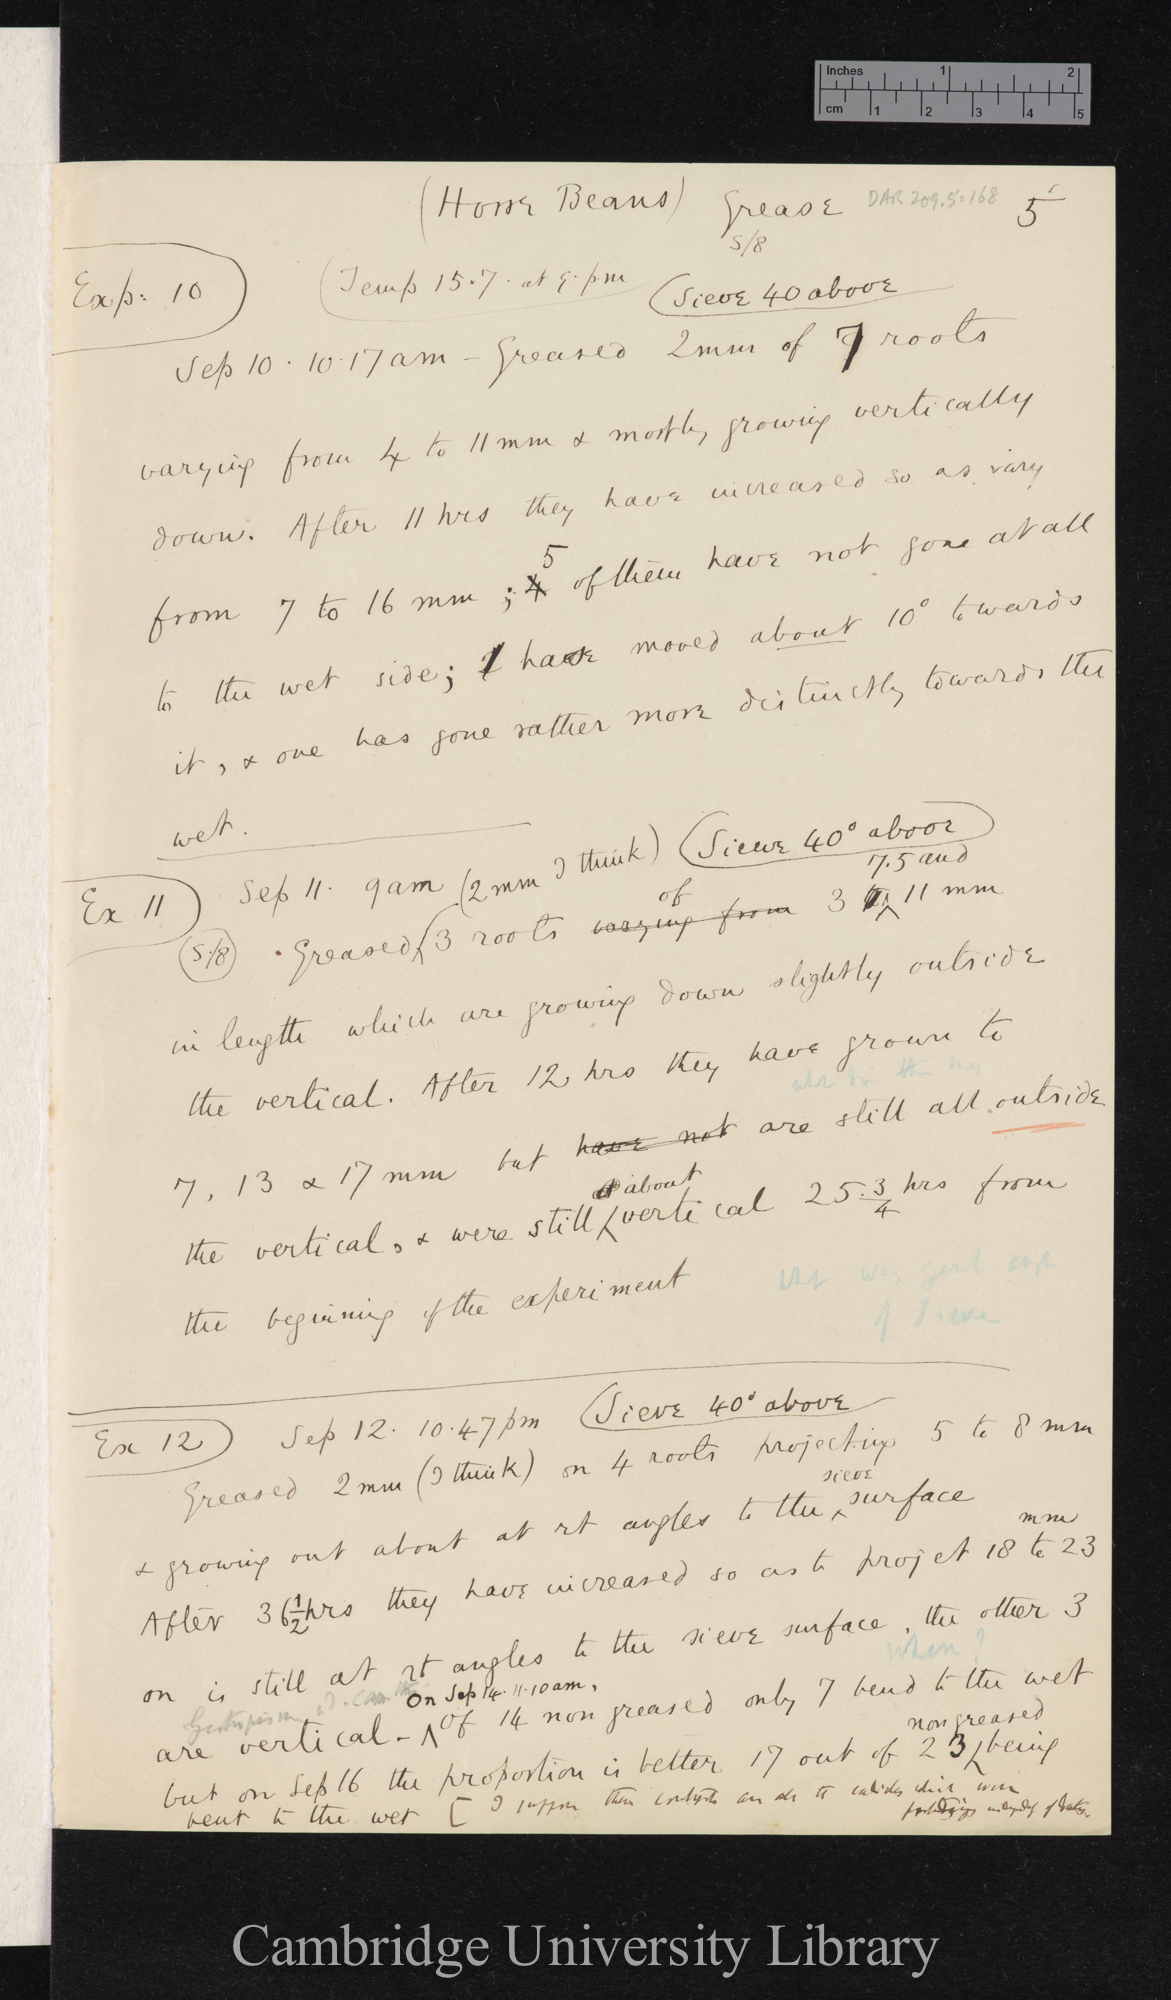 Inches 1 2
cm 1 2 3 4 5
(Horse Beans) Grease DAR 209.5:168 5
S/8
Exp: 10 (Temp 15.7. at 9. pm (Sieve 40 above
Sep 10. 10.17 am – Greased 2mm of 7 roots
varying from 4 to 11 mm & mostly growing vertically
down. After 11 hrs they have increased so as vary
5
from 7 to 16 mm ; 4 of them have not gone at all
to the wet side; 1 have moved about 10° towards
it, & one has gone rather more distinctly towards the
wet.
Ex 11 Sep 11. 9am (2mm I think) (Sieve 40° above)
of 7.5 and
S/8 Greased 3 roots varying from 3 11 mm
in length which are growing down slightly outside
the vertical. After 12 hrs they have grown to
7, 13 & 17 mm but have not are still all outside
about
the vertical, & were still vertical 25 3/4 hrs from
the beginning of the experiment
what was good angle
of Sieve
Ex 12 Sep 12. 10.47 pm (Sieve 40° above
Greased 2mm (I think) on 4 roots projecting 5 to 8 mm
sieve
& growing out about at rt angles to the surface
mm
After 36 1/2 hrs they have increased so as to projet 18 to 23
on is still at rt angles to the sieve surface, the other 3
When?
Geotropism
On Sep 14. 11.10 am,
are vertical – of 14 non greased only 7 bend to the wet
non greased
but on Sep 16 the proportion is better 17 out of 23 being
bent to the wet [ I suppose
Cambridge University Library